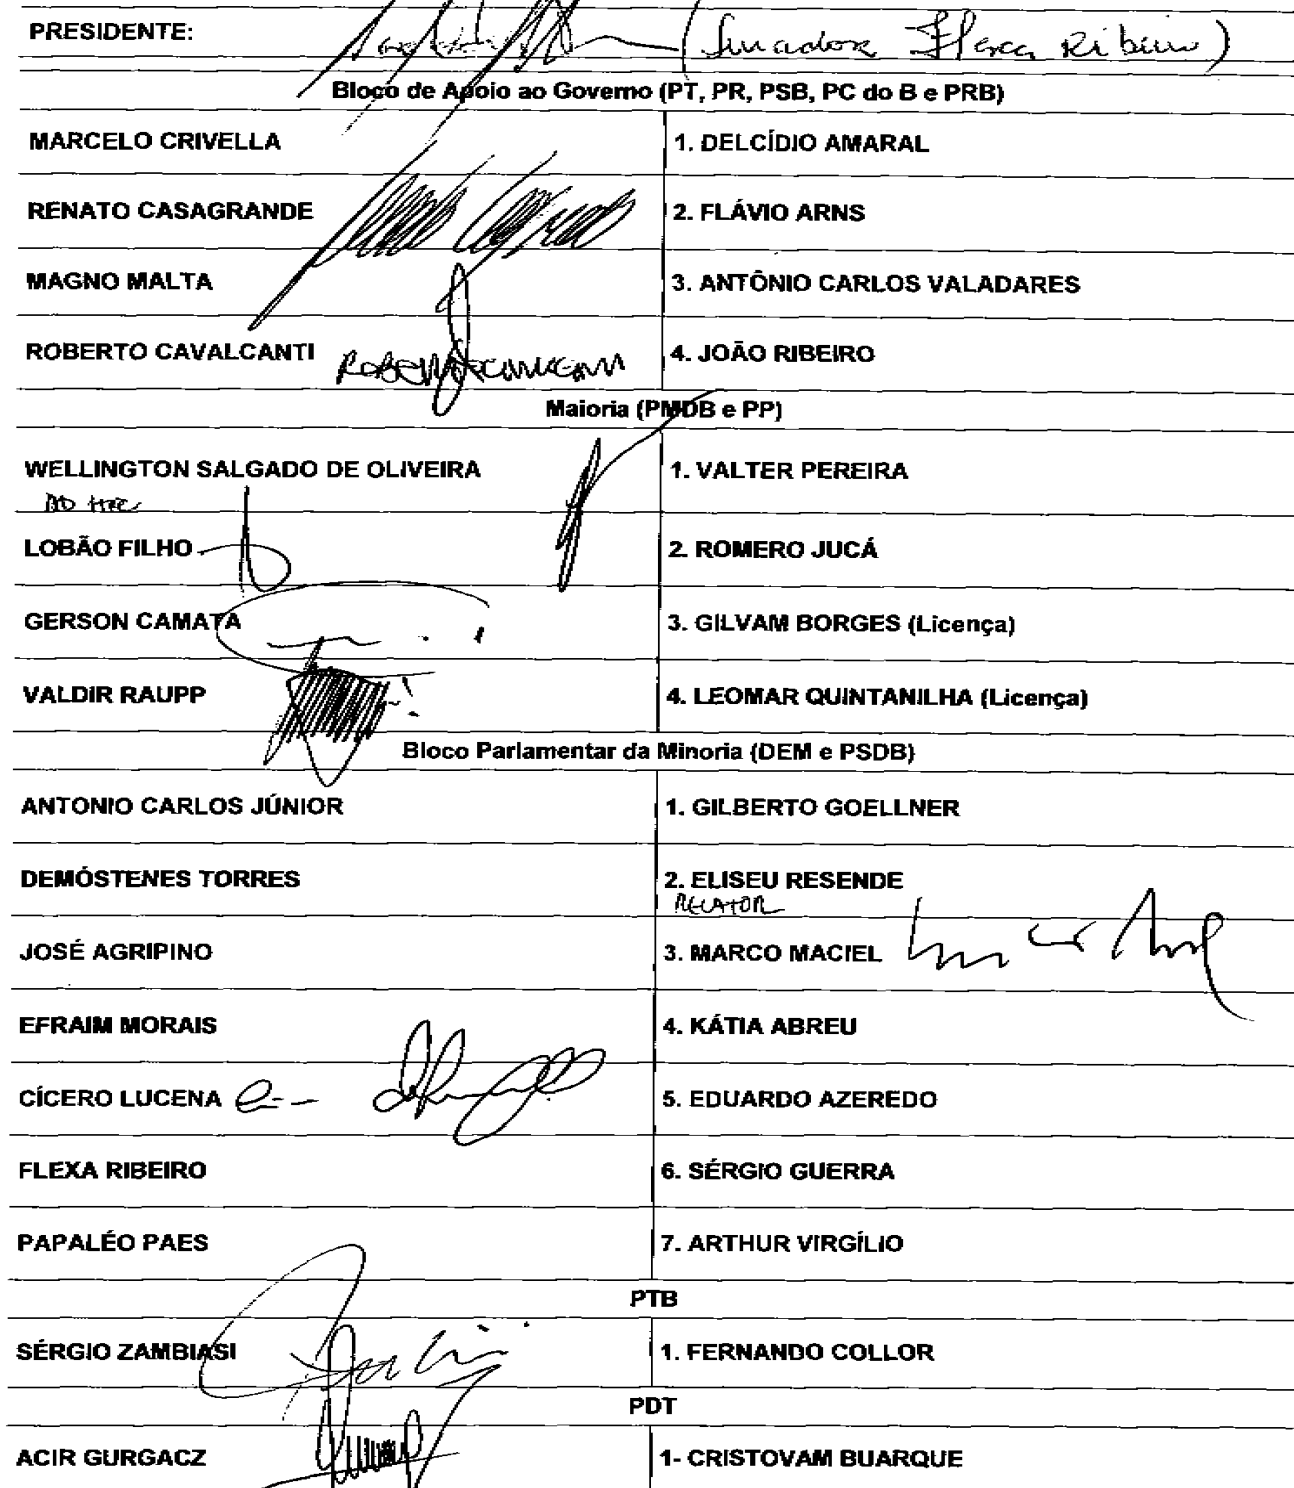 PRESIDENTE: (Senador Flexa Ribeiro)
Bloco de Apoio ao Governo (PT, PR, PSB, PC do B e PRB)
MARCELO CRIVELLA 1. DELCÍDIO AMARAL
RENATO CASAGRANDE 2. FLÁVIO ARNS
MAGNO MALTA 3. ANTÔNIO CARLOS VALADARES
ROBERTO CAVALCANTI 4. JOÃO RIBEIRO
Maioria (PMDB e PP)
WELLINGTON SALGADO DE OLIVEIRA 1. VALTER PEREIRA
AD HOC
LOBÃO FILHO 2. ROMERO JUCÁ
GERSON CAMATA 3. GILVAM BORGES (Licença)
VALDIR RAUPP 4. LEOMAR QUINTANILHA (Licença)
Bloco Parlamentar da Minoria (DEM e PSDB)
ANTONIO CARLOS JÚNIOR 1. GILBERTO GOELLNER
DEMÓSTENES TORRES 2. ELISEU RESENDE
RELATOR
JOSÉ AGRIPINO 3. MARCO MACIEL
EFRAIM MORAIS 4. KÁTIA ABREU
CÍCERO LUCENA 5. EDUARDO AZEREDO
FLEXA RIBEIRO 6. SÉRGIO GUERRA
PAPALÉO PAES 7. ARTHUR VIRGÍLIO
PTB
SÉRGIO ZAMBIASI 1. FERNANDO COLLOR
PDT
ACIR GURGACZ 1- CRISTOVAM BUARQUE